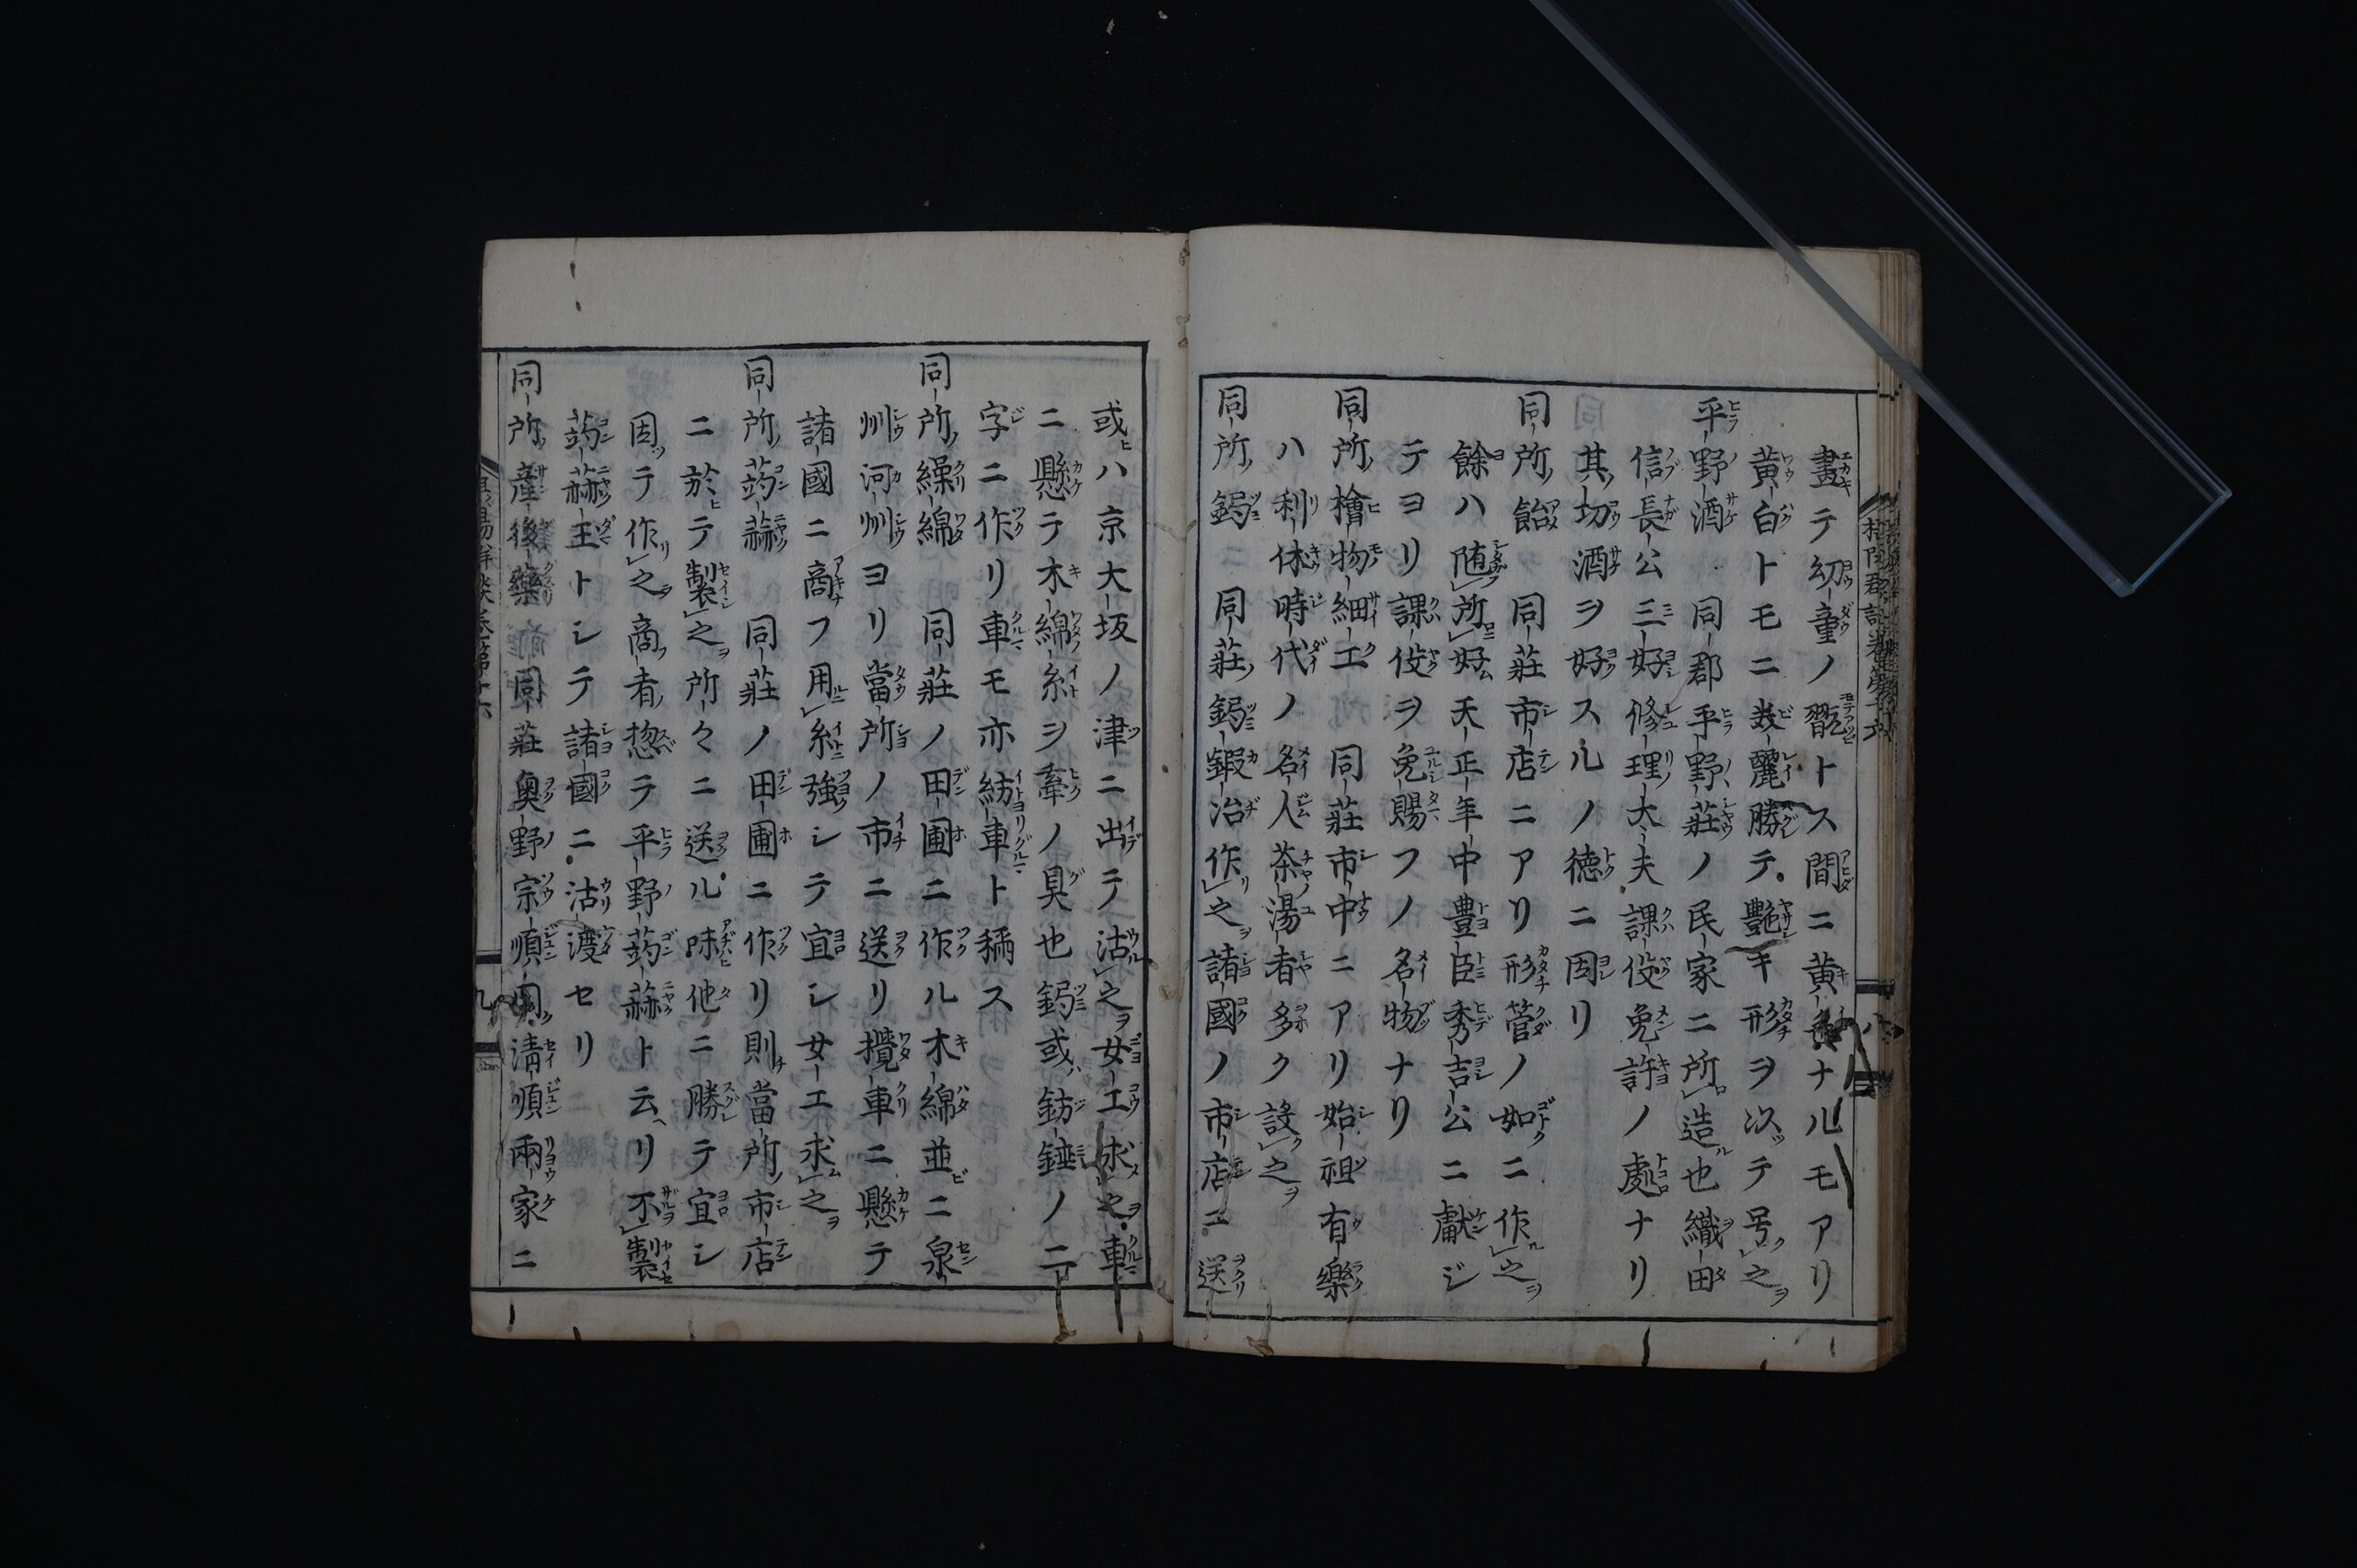 畫テ幼童ノ翫トス間ニ黄色ナルモアリ
黄白トモニ美麗勝テ艶キ形ヲ次テ号之
平野酒 同郡平野莊ノ民家ニ所造也織田
信長公三好修理大夫課役免許ノ處ナリ
其切酒ヲ好スルノ徳ニ因リ
同所飴 同莊市店ニアリ形管ノ如ニ作之
餘ハ随所好天正年中豊臣秀吉公ニ獻ジ
テヨリ課役ヲ免賜フノ名物ナリ
同所檜物細工 同莊市中ニアリ始祖有樂
ハ利休時代ノ名人茶湯者多ク設之
同所錫 同莊錫鍛冶作之諸國ノ市店ニ送
或ハ京大坂ノ津ニ出テ沽之女工求之車
ニ懸テ木綿糸ヲ牽ノ具也錫或紡錘ノ二
字ニ作リ車モ亦紡車ト稱ス
同所繰綿 同莊ノ田圃ニ作ル木綿並ニ泉
州河州ヨリ當所ノ市ニ送リ攪車ニ懸テ
諸國ニ商フ用糸強シテ宜シ女工求之
同所蒟蒻 同莊ノ田圃ニ作リ則當所市店
ニ於テ製之所々ニ送ル味他ニ勝テ宜シ
因テ作之商者惣テ平野蒟蒻ト云リ不製
蒟蒻玉トシテ諸國ニ沽渡セリ
同所産後藥 同莊奥野宗順同清順兩家ニ